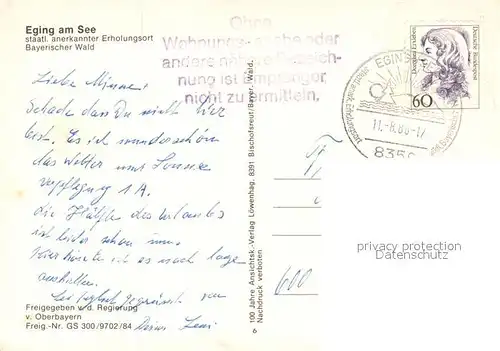 Eging am See
staatl. anerkannter Erholungsort
Bayerischer Wald
Ohne
Wohnungs- oder
andere nähere Bezeich-
nung ist Empfänger
nicht zu ermitteln.
Dorothea Erxleben
Deutsche Bundespost
60
EGING
11.-8.88-17
8359
Liebe Minna!
Schade dass Du nicht hier
bist. Es ist wunderschön
das Wetter und Sonne
Verpflegung 1A.
die Hälfte des Urlaubs
ist leider schon um
hier könnte ich es noch lange
aushalten.
Sei herzlich gegrüsst von
600
privacy protection
Datenschutz
100 Jahre Ansichtsk.-Verlag Löwenhag, 8391 Bischofsreut/Bayer. Wald.
Nachdruck verboten
Freigegeben v. d. Regierung
v. Oberbayern
Freig.-Nr. GS 300/9702/84
6